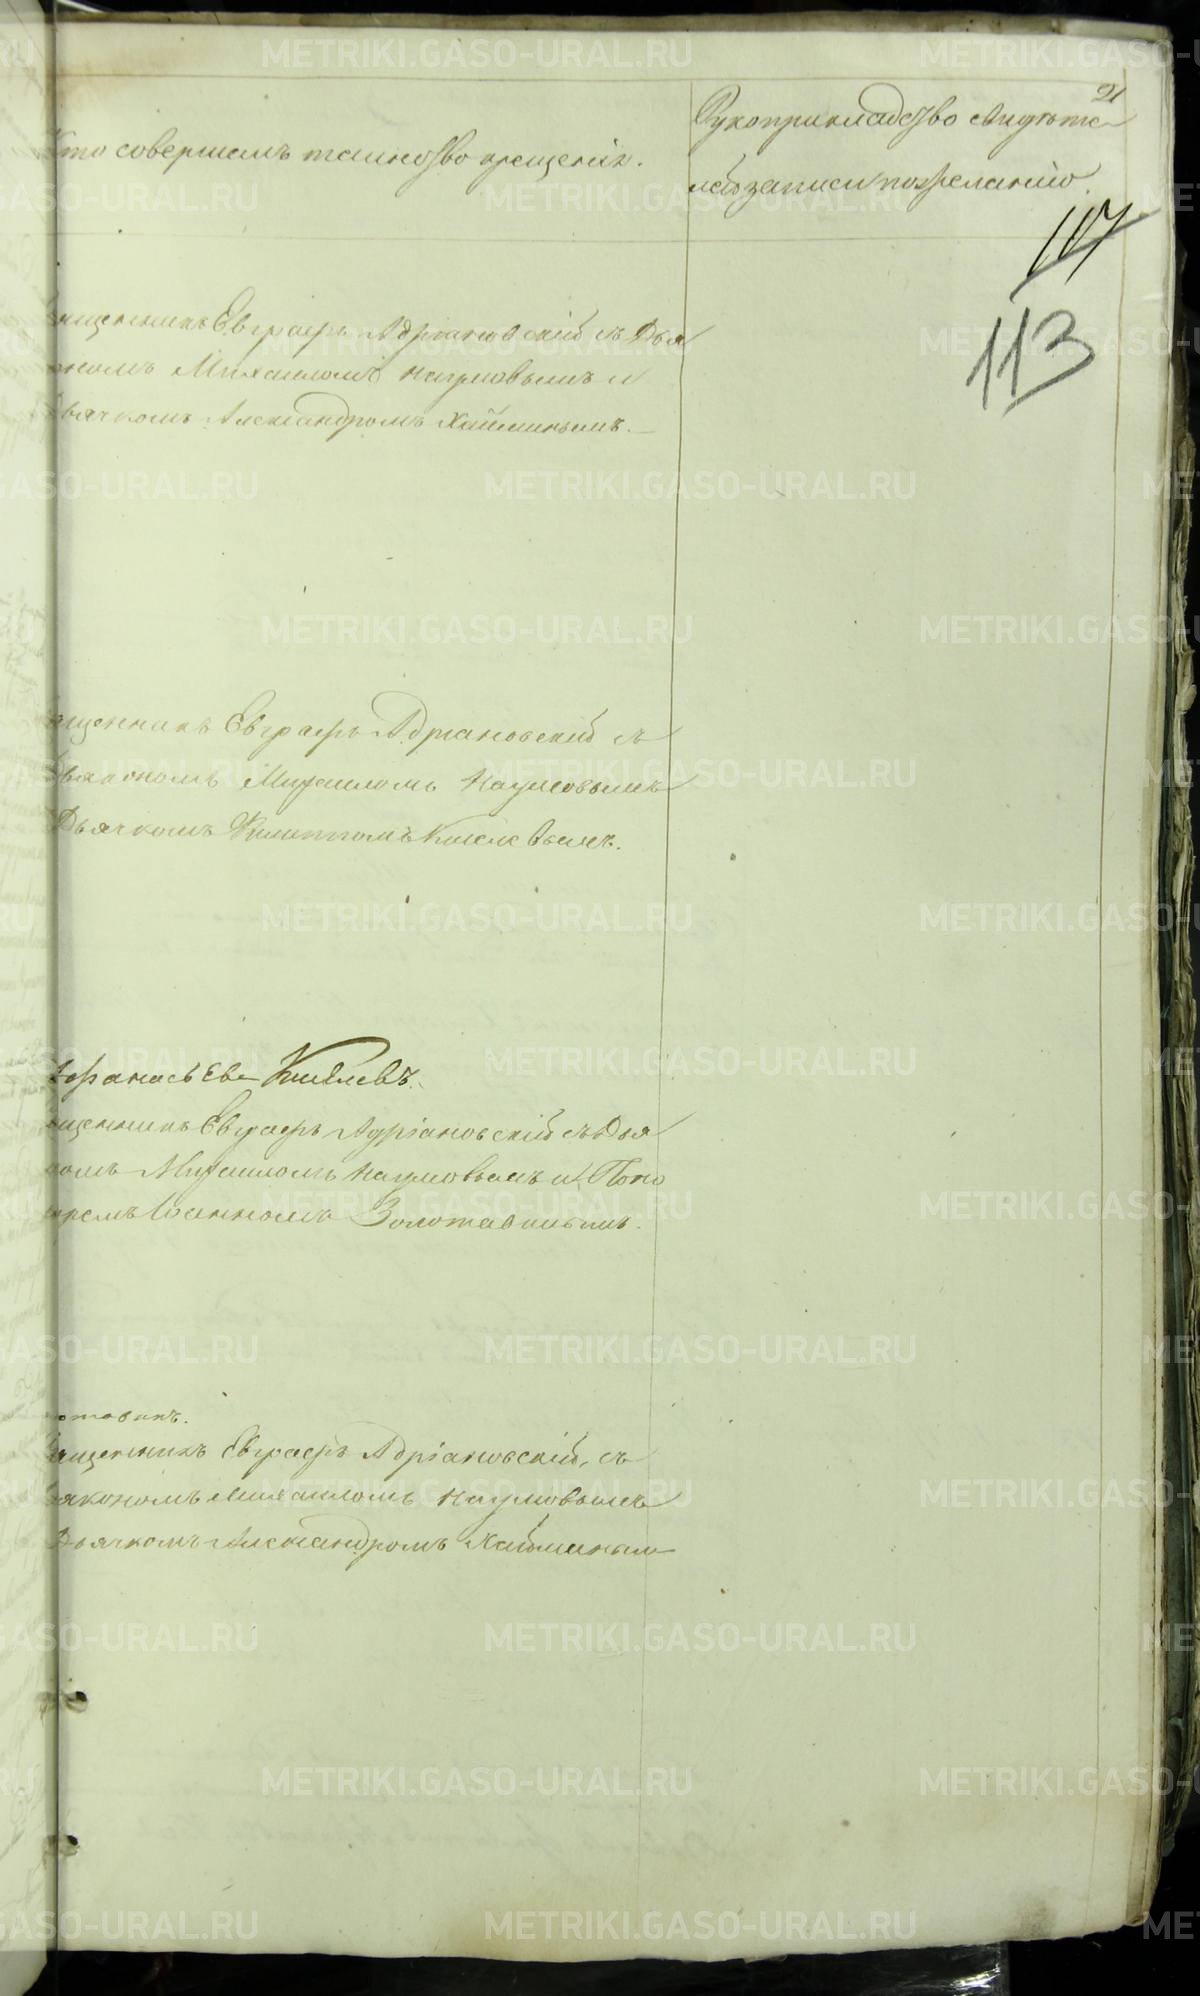 21
Кто совершалъ таинство крещенія.
Рукоприкладство свидѣте
лей записи по желанію.
117
113
вященникъ Евграфъ Адріановскій съ Дья
кономъ Михаиломъ Наумовымъ и
Дьячкомъ Александромъ Хайминымъ.
ященникъ Евграфъ Адріановскій съ
Дьякономъ Михаиломъ Наумовымъ
Дьячкомъ Филиппомъ Киселевымъ.
Афанасьевъ Киселевъ.
ященникъ Евграфъ Адріановскій съ Дья
номъ Михаиломъ Наумовымъ и Поно
маремъ Іоанномъ Золотавинымъ.
отавинъ.
вященникъ Евграфъ Адріановскій, съ
Дьякономъ Михаиломъ Наумовымъ
Дьячкомъ Александромъ Хайминым
METRIKI.GASO-URAL.RU